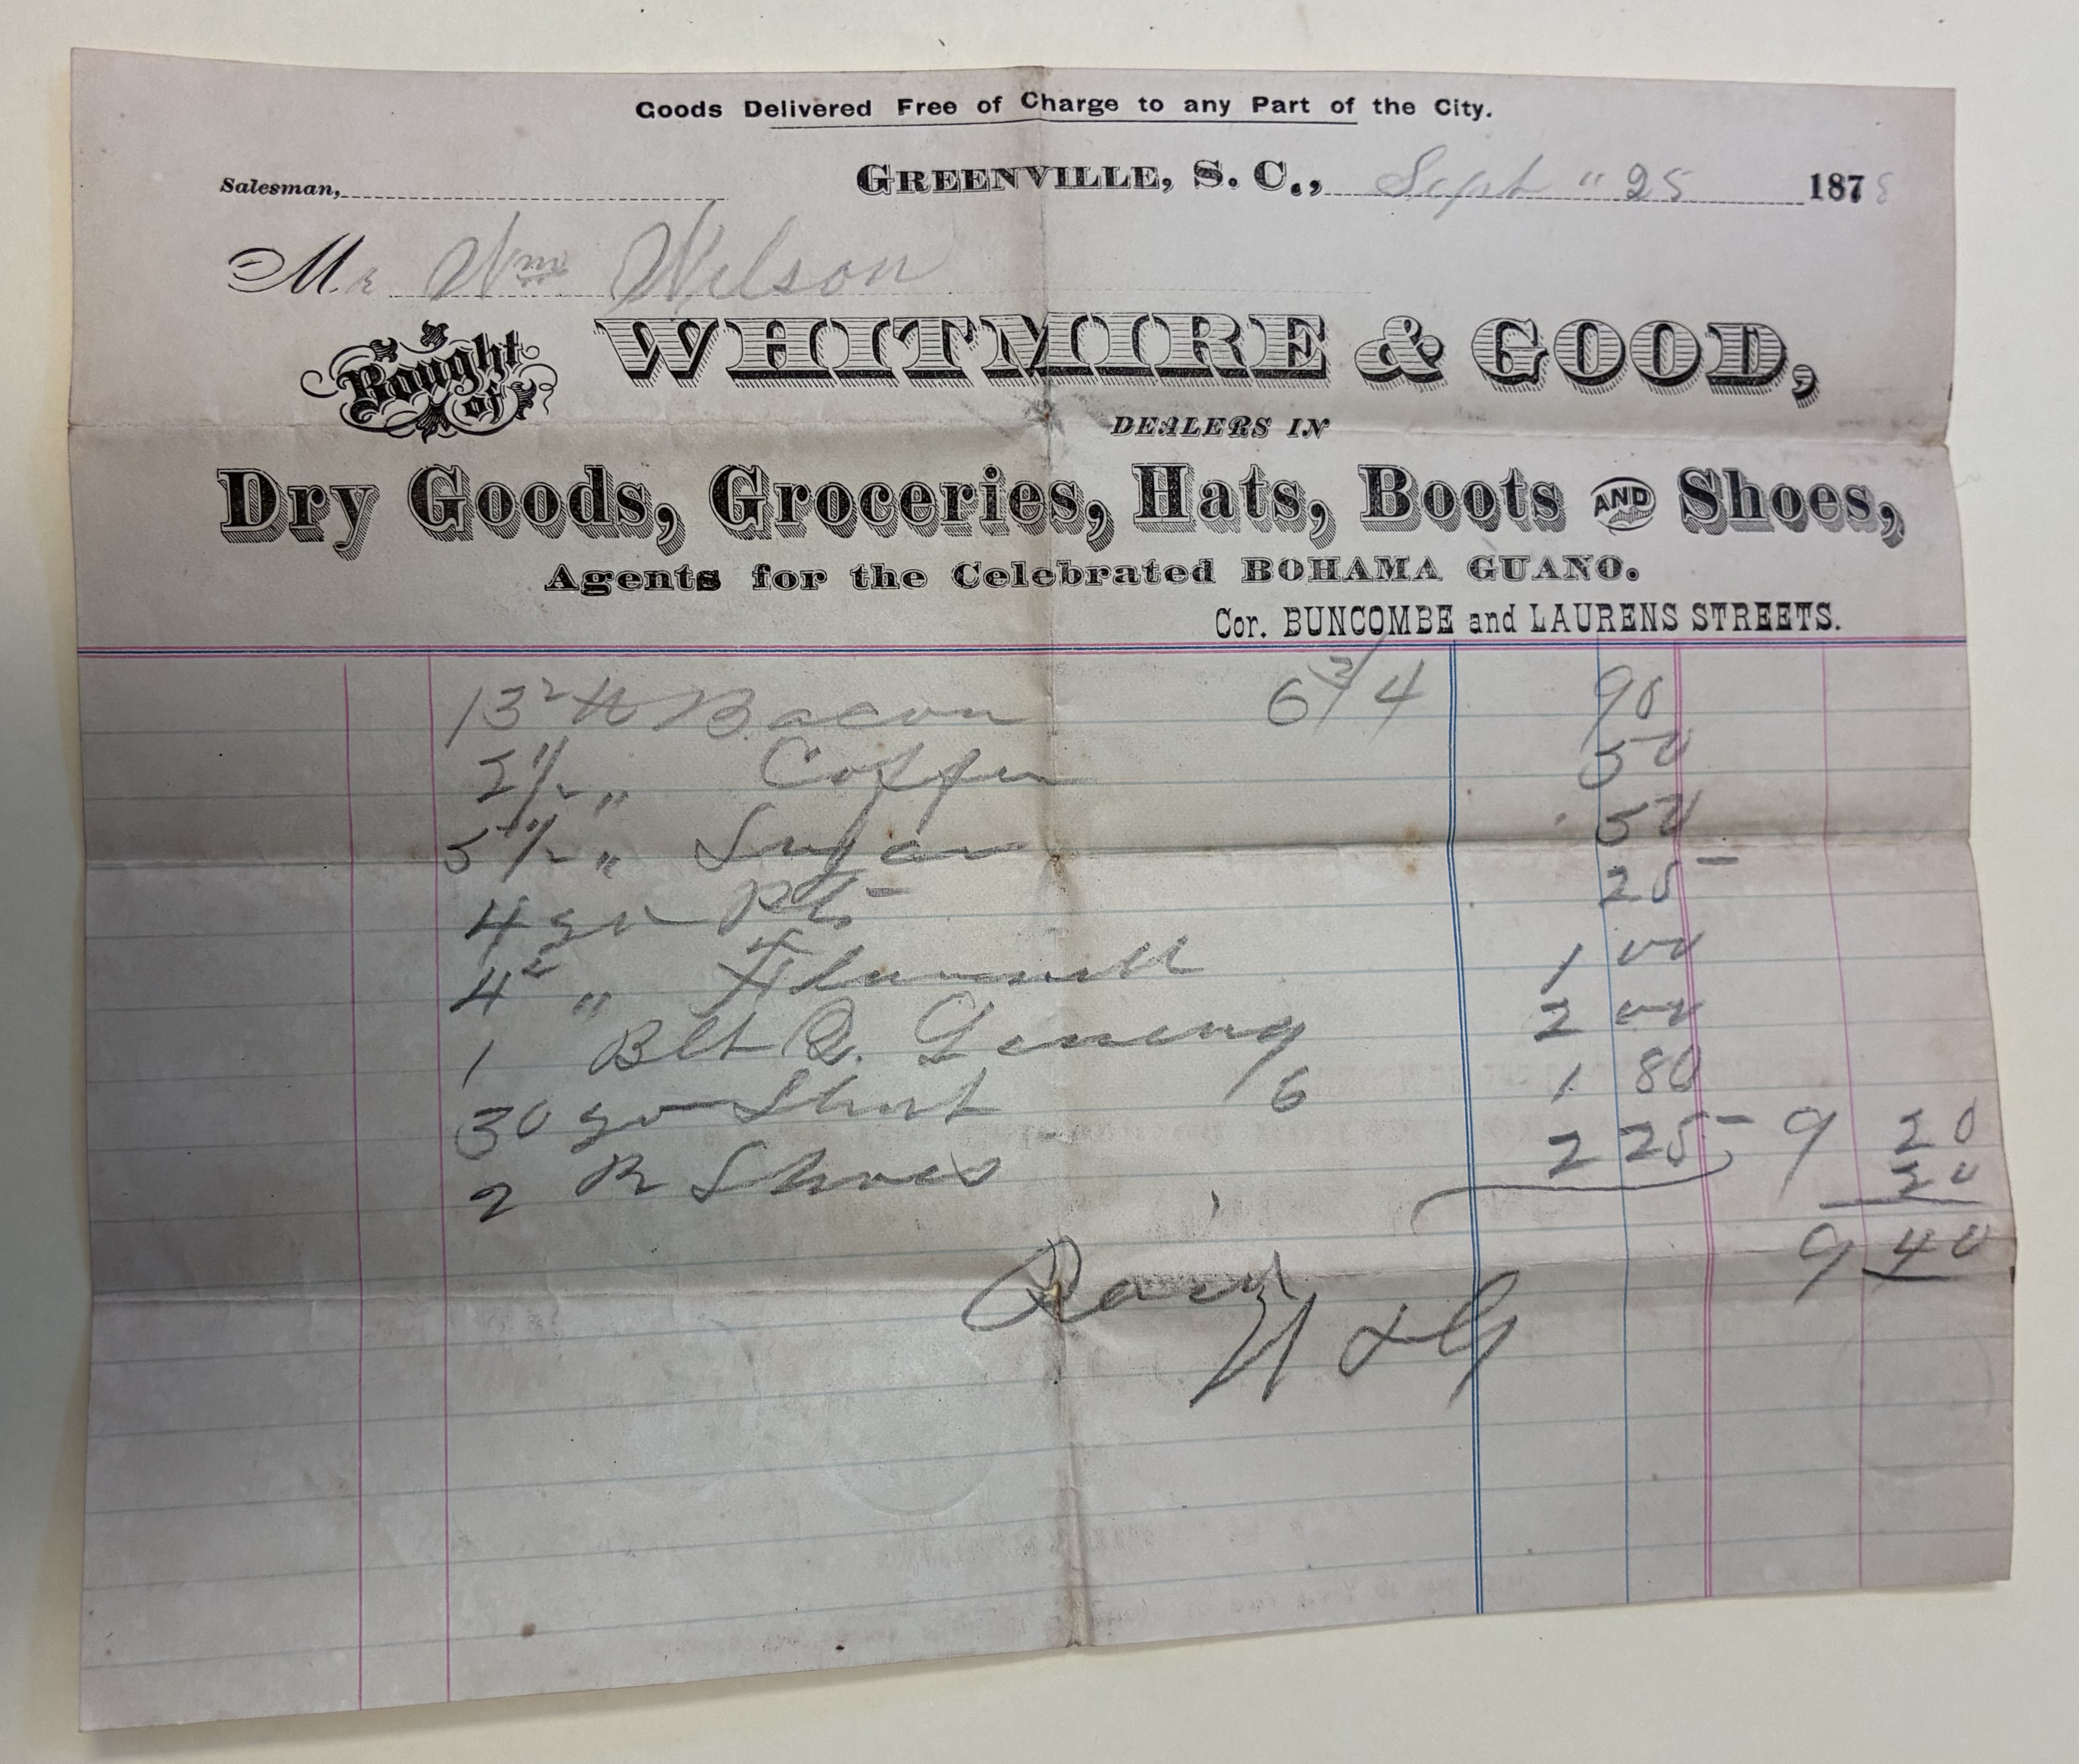 Goods Delivered Free of Charge to any Part of the City.
Salesman, GREENVILLE, S. C., Sept " 25 1878
Mr Wm Wilson
Bought of WHITMIRE & GOOD,
DEALERS IN
Dry Goods, Groceries, Hats, Boots AND Shoes,
Agents for the Celebrated BOHAMA GUANO.
Cor. BUNCOMBE and LAURENS STREETS.
Bacon 6 3/4 90
2 1/2 " Coffee 50
5 1/2 " Sugar 50
4 25
4 " 1 00
1 Blt 2 00
30 6 1 80
2 Pr Shoes 2 25 9 20
20
9 40
Paid
W & G